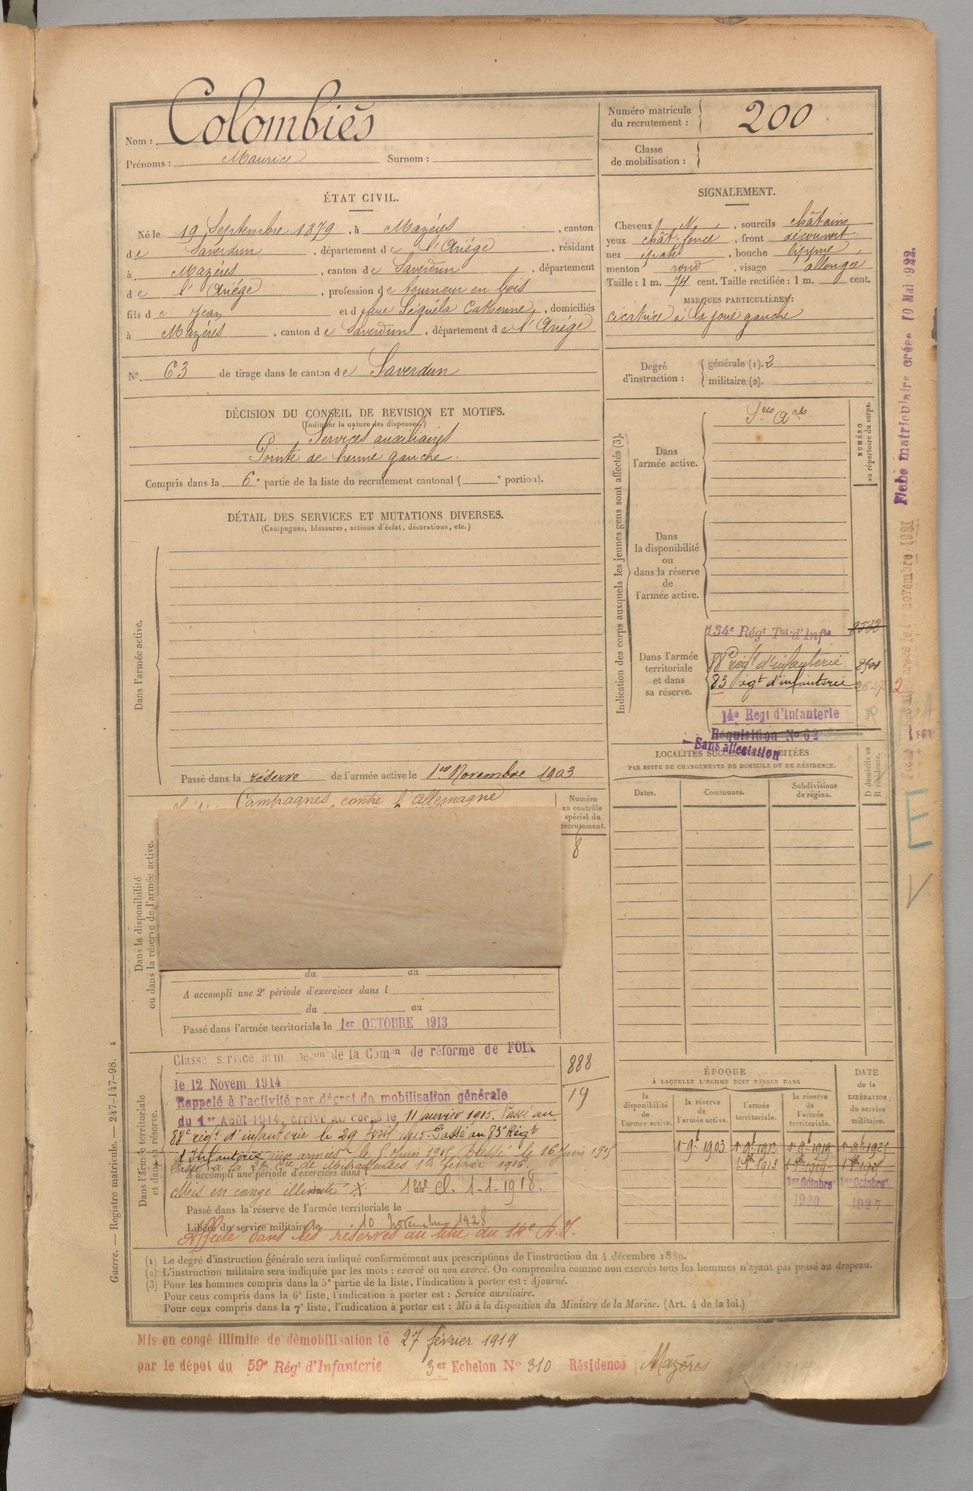 Nom : Colombiès
Prénoms : Maurice Surnom :
Numéro matricule du recrutement : 200
Classe de mobilisation :
ÉTAT CIVIL.
Né le 19 Septembre 1879, à Mazères, canton
de Saverdun, département de l'Ariège, résidant
à Mazères, canton de Saverdun, département
de l'Ariège, profession de tourneur en bois
fils de Jean et de feue Séguéla Catherine, domiciliés
à Mazères, canton de Saverdun, département de l'Ariège
N° 63 de tirage dans le canton de Saverdun
DÉCISION DU CONSEIL DE REVISION ET MOTIFS.
(Indiquer la nature des dispenses.)
Services auxiliaires
Pointe de hernie gauche.
Compris dans la 6e partie de la liste du recrutement cantonal ( e portion).
DÉTAIL DES SERVICES ET MUTATIONS DIVERSES.
(Campagnes, blessures, actions d'éclat, décorations, etc.)
Dans l'armée active.
Passé dans la réserve de l'armée active le 1er Novembre 1903
SIGNALEMENT.
Cheveux, sourcils châtains
yeux chât. foncé, front découvert
nez, bouche moyenne
menton rond, visage allongé
Taille : 1 m. 74 cent. Taille rectifiée : 1 m. cent.
MARQUES PARTICULIÈRES :
cicatrice à la joue gauche
Degré d'instruction : générale (1). 3
militaire (2).
Indication des corps auxquels les jeunes gens sont affectés (3).
NUMÉRO au répertoire du corps.
Dans l'armée active.
Dans la disponibilité ou dans la réserve de l'armée active.
Dans l'armée territoriale et dans sa réserve.
134e Régt Tal d'Infie
88e régt d'infanterie
83 régt d'infanterie
14e Régt d'Infanterie
Réquisition No 62
Sans affectation
LOCALITÉS SUCCESSIVES HABITÉES
PAR SUITE DE CHANGEMENTS DE DOMICILE OU DE RÉSIDENCE.
Dates.
Communes.
Subdivisions de région.
D domicile ou R résidence.
Fiche matriculaire créée 10 Mai 1922.
E
V
Campagnes contre l'Allemagne
Numéro au contrôle spécial du recrutement.
8
Dans la disponibilité ou dans la réserve de l'armée active.
du au
A accompli une 2e période d'exercices dans l
du au
Passé dans l'armée territoriale le 1er OCTOBRE 1913
Dans l'armée territoriale et dans sa réserve.
Classé service armé Décon de la Comon de réforme de FOIX
le 12 Novem 1914
888
19
Rappelé à l'activité par décret de mobilisation générale
du 1er Août 1914, arrivé au corps le 11 janvier 1915. Passé au
88e régt d'infanterie le 29 avril 1915. Passé au 83e Régt
d'Infanterie aux armées le 5 juin 1915. Blessé le 16 juin 1915
A accompli une période d'exercices dans
Passé dans la réserve de l'armée territoriale le
Libéré du service militaire le 10 novembre 1928
Affecté dans les réserves au titre du 14e R.I.
ÉPOQUE
À LAQUELLE L'HOMME DOIT PASSER DANS
la disponibilité de l'armée active.
la réserve de l'armée active.
l'armée territoriale.
la réserve de l'armée territoriale.
DATE de la LIBÉRATION du service militaire.
1er Octobre 1920
1er Octobre 1927
(1) Le degré d'instruction générale sera indiqué conformément aux prescriptions de l'instruction du 4 décembre 1889.
(2) L'instruction militaire sera indiquée par les mots : exercé ou non exercé. On comprendra comme non exercés tous les hommes n'ayant pas passé au drapeau.
(3) Pour les hommes compris dans la 5e partie de la liste, l'indication à porter est : Ajourné.
Pour ceux compris dans la 6e liste, l'indication à porter est : Service auxiliaire.
Pour ceux compris dans la 7e liste, l'indication à porter est : Mis à la disposition du Ministre de la Marine. (Art. 4 de la loi.)
Guerre. — Registre matricule. — 247-147-98.
Mis en congé illimité de démobilisation le 27 février 1919
par le dépôt du 59e Régt d'Infanterie 3er Echelon No 310 Résidence Mazères